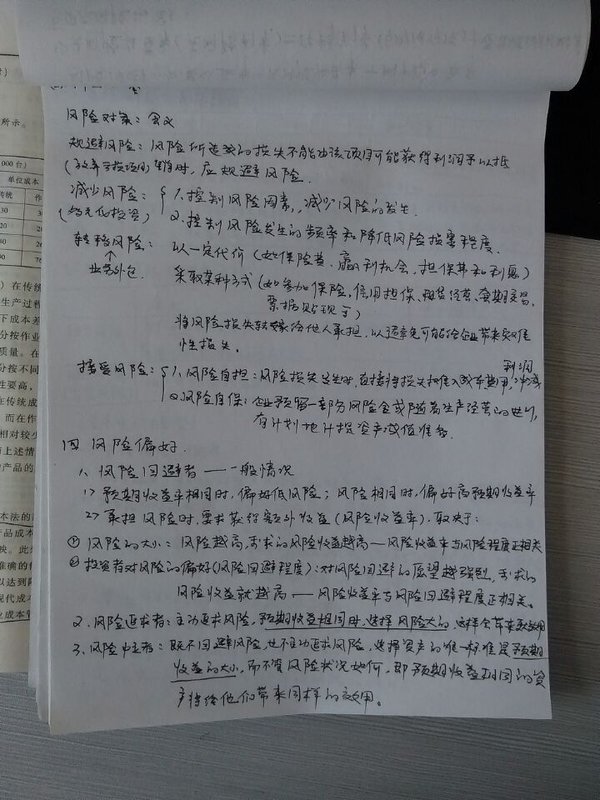 风险对策：含义
规避风险：风险所造成的损失不能由该项目可能获得利润予以抵
(放弃亏损项目) 消时，应规避风险.
减少风险：{ 1、控制风险因素，减少风险的发生.
2、控制风险发生的频率和降低风险损害程度.
转移风险： 以一定代价（如保险费、赢利机会，担保费和利息）
业务外包. 采取某种方式（如参加保险，信用担保、租赁经营、套期交易.
票据贴现等）
将风险损失转嫁给他人承担，以避免可能给企业带来灾难
性损失.
接受风险：{ 1、风险自担：风险损失发生时，直接将损失摊入成本费用，冲减
利润
2、风险自保：企业预留一部分风险金或随着生产经营的进行，
有计划地计提资产减值准备.
四 风险偏好.
1、风险回避者 —— 一般情况
1) 预期收益率相同时，偏好低风险；风险相同时，偏好高预期收益率
2) 承担风险时，要求获得额外收益（风险收益率），取决于：
① 风险的大小：风险越高，要求的风险收益越高 — 风险收益率与风险程度正相关
② 投资者对风险的偏好（风险回避程度）：对风险回避的愿望越强烈，要求的
风险收益就越高 —— 风险收益率与风险回避程度正相关.
2、风险追求者：主动追求风险，预期收益相同时，选择风险大的，这样会带来更大效用
3、风险中立者：既不回避风险，也不主动追求风险，选择资产的唯一标准是预期
收益的大小，而不管风险状况如何，即预期收益相同的资
产将给他们带来同样的效用。
所示。
000台)
单位成本
传统
在传统
生产过程
下成本差
分按作业
质量。在
分按不同
性要高，
在传统成
而在作
相对较少
上述情
产品的
本法的
产品成本
映。此
以达到
现代成本
成本管